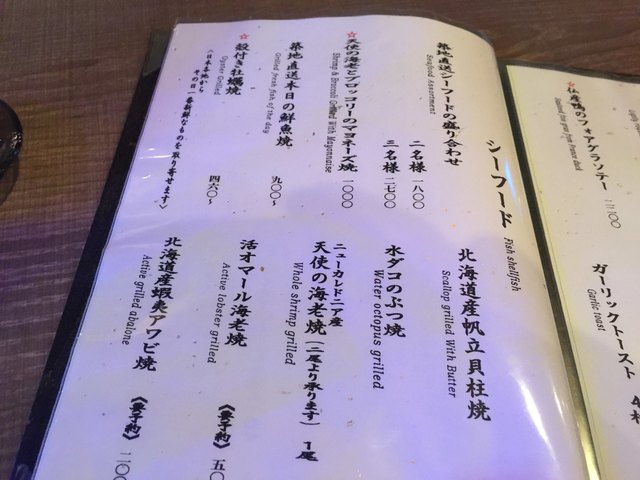 シーフード Fish shellfish
築地直送シーフードの盛り合わせ
Seafood Assortment
二名様 一八〇〇
三名様 二七〇〇
☆天使の海老とブロッコリーのマヨネーズ焼 一〇〇〇
Shrimp & Broccoli Grilled With Mayonnaise
築地直送本日の鮮魚焼 九〇〇〜
Grilled fresh fish of the day
☆殻付き牡蠣焼 四六〇〜
Oyster Grilled
〈日本各地から
その日一番新鮮なものを取り寄せます〉
北海道産帆立貝柱焼
Scallop grilled With Butter
水ダコのぶつ焼
Water octopus grilled
ニューカレドニア産
天使の海老焼(二尾より承ります) 1尾
Whole shrimp grilled
活オマール海老焼 《要予約》 五〇
Active lobster grilled
北海道産蝦夷アワビ焼 《要予約》 二〇〇
Active grilled abalone
鴨のフォアグラソテー
ガーリックトースト
Garlic toast